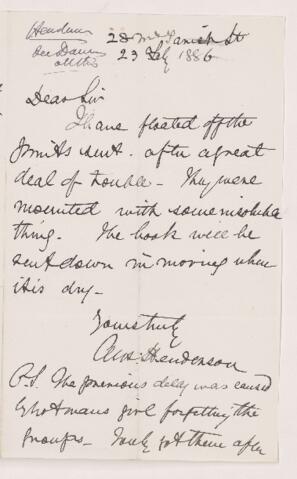 Henderson
see Dawson
all this
28 St
23 July 1886
Dear Sir
I have floated off the
prints sent. after a great
deal of trouble - They were
mounted with some insoluble
thing. The book will be
sent down in morning when
it is dry -
Yours truly
Alex Henderson
P.S. The previous delay was caused
by Notman's girl forgetting the
groups - I only got them after